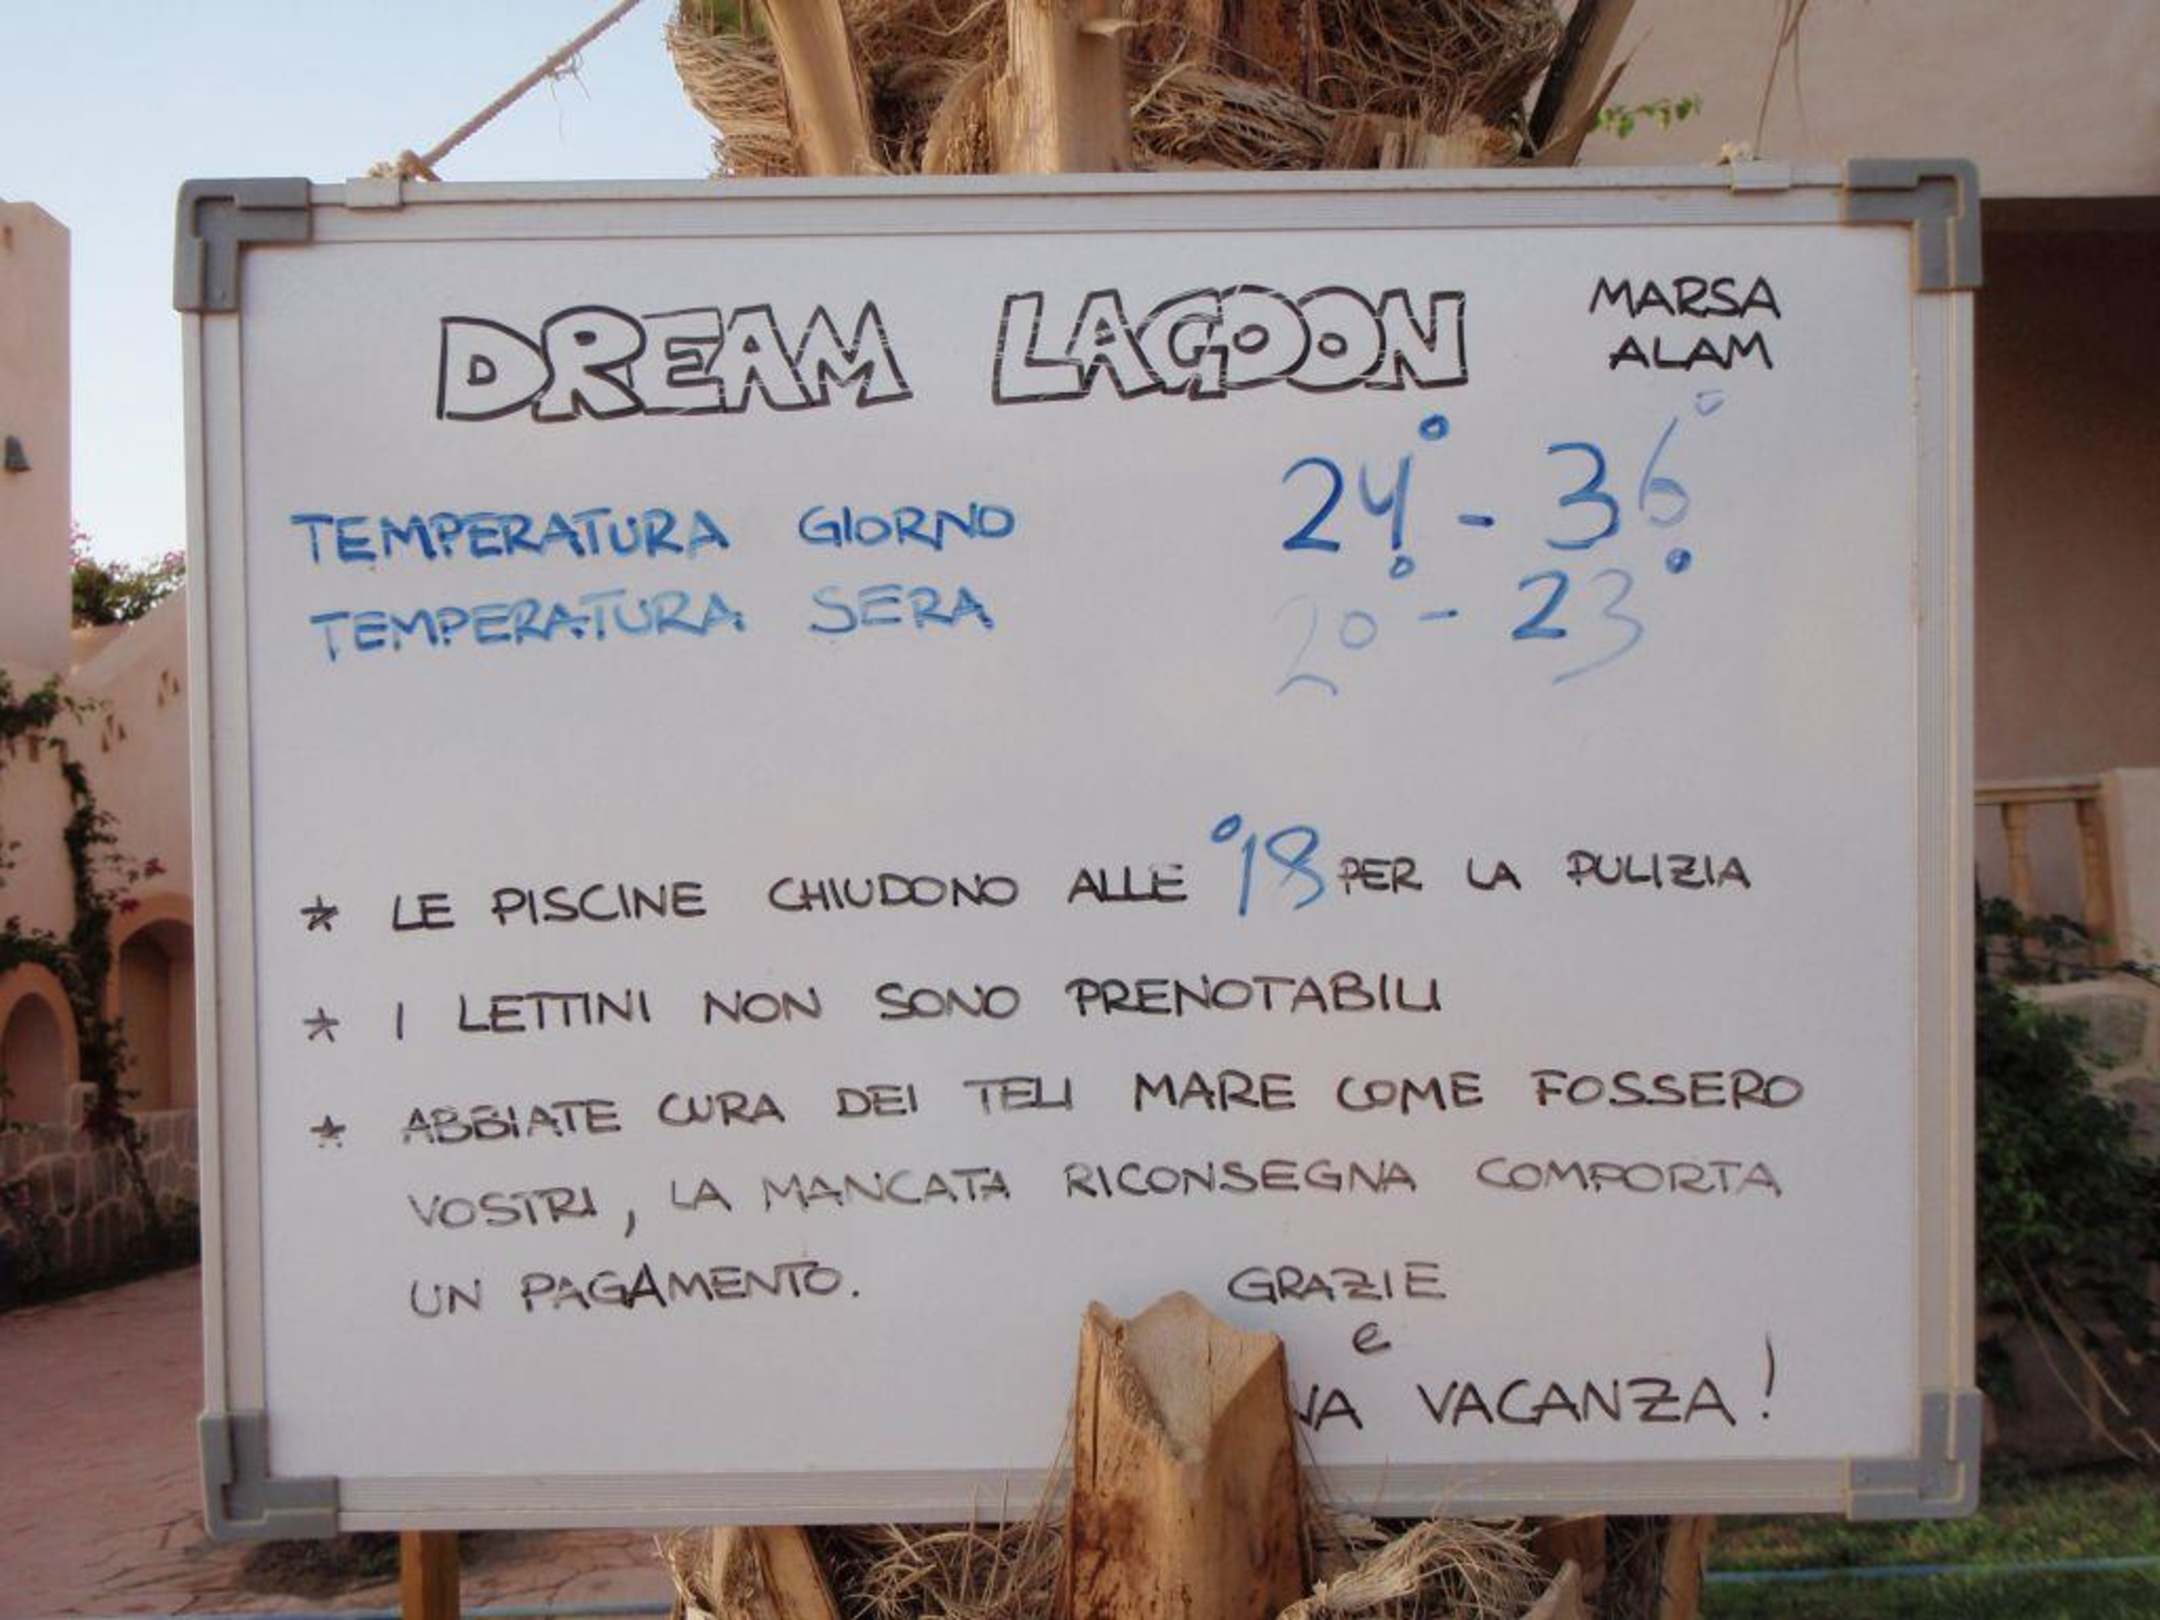 DREAM LAGOON
MARSA
ALAM
TEMPERATURA GIORNO 24° - 36°
TEMPERATURA SERA 20° - 23°
* LE PISCINE CHIUDONO ALLE °18 PER LA PULIZIA
* I LETTINI NON SONO PRENOTABILI
* ABBIATE CURA DEI TELI MARE COME FOSSERO
VOSTRI, LA MANCATA RICONSEGNA COMPORTA
UN PAGAMENTO.
GRAZIE
e
VACANZA!